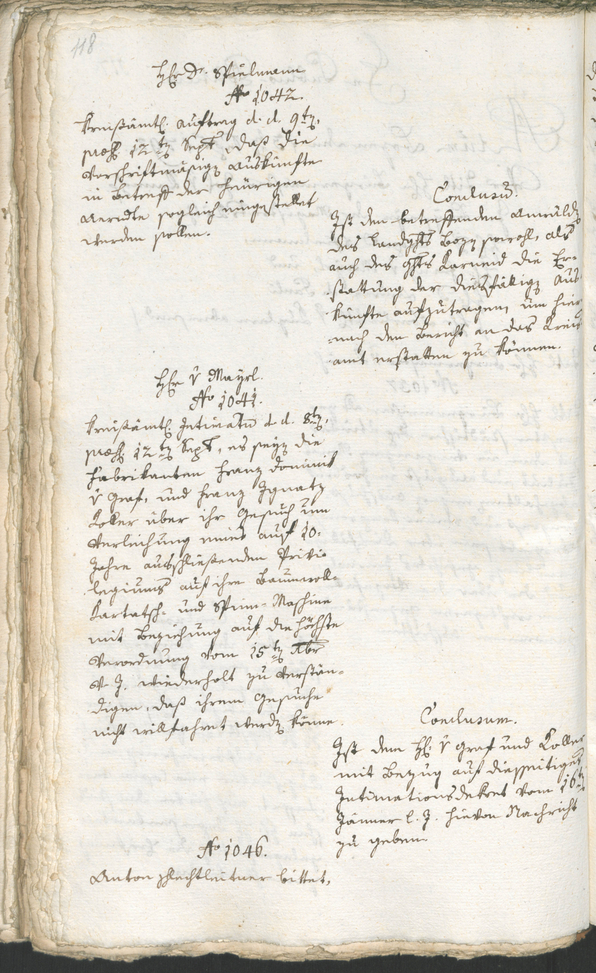 118
Hr Dr. Spielmann
No 1042.
Kreisämtl. Auftrag d. d. 9tn,
præs. 12tn Sept., daß die
vorschriftmäsige Auskünfte
in Betreff der heurigen
Aerndte sogleich eingestellet
werden sollen.
Conclusum.
Ist den betreffenden Anwäldn
des Landghts Bozn sowohl, als
auch des Ghts Karneid die Er-
stattung der diesfällign Aus
künfte aufzutragen, um hier
nach den Bericht an das Kreis
amt erstatten zu können.
Hr v Mayrl.
No 1041.
Kreisämtl. Intimatum d. d. 8tn,
præs. 12tn Sept., es seyn die
Fabrikanten Franz Dominik
v Graf, und Franz Ignatz
Koller über ihr Gesuch um
Verleihung eines auf 10.
Jahre ausschließenden Privi-
legiums auf ihre Baumwoll-
Kartatsch- und Spinn-Maschine
mit Beziehung auf die höchste
Verordnung vom 15tn Xbr
v. J. wiederholt zu verstän-
digen, daß ihrem Gesuche
nicht willfahret werdn könne.
Conclusum.
Ist dem H. v Graf und Koller
mit Bezug auf diesseitiges
Intimationsdekret vom 16tn
Jänner l. J. hievon Nachricht
zu geben.
No 1046.
Anton bittet,